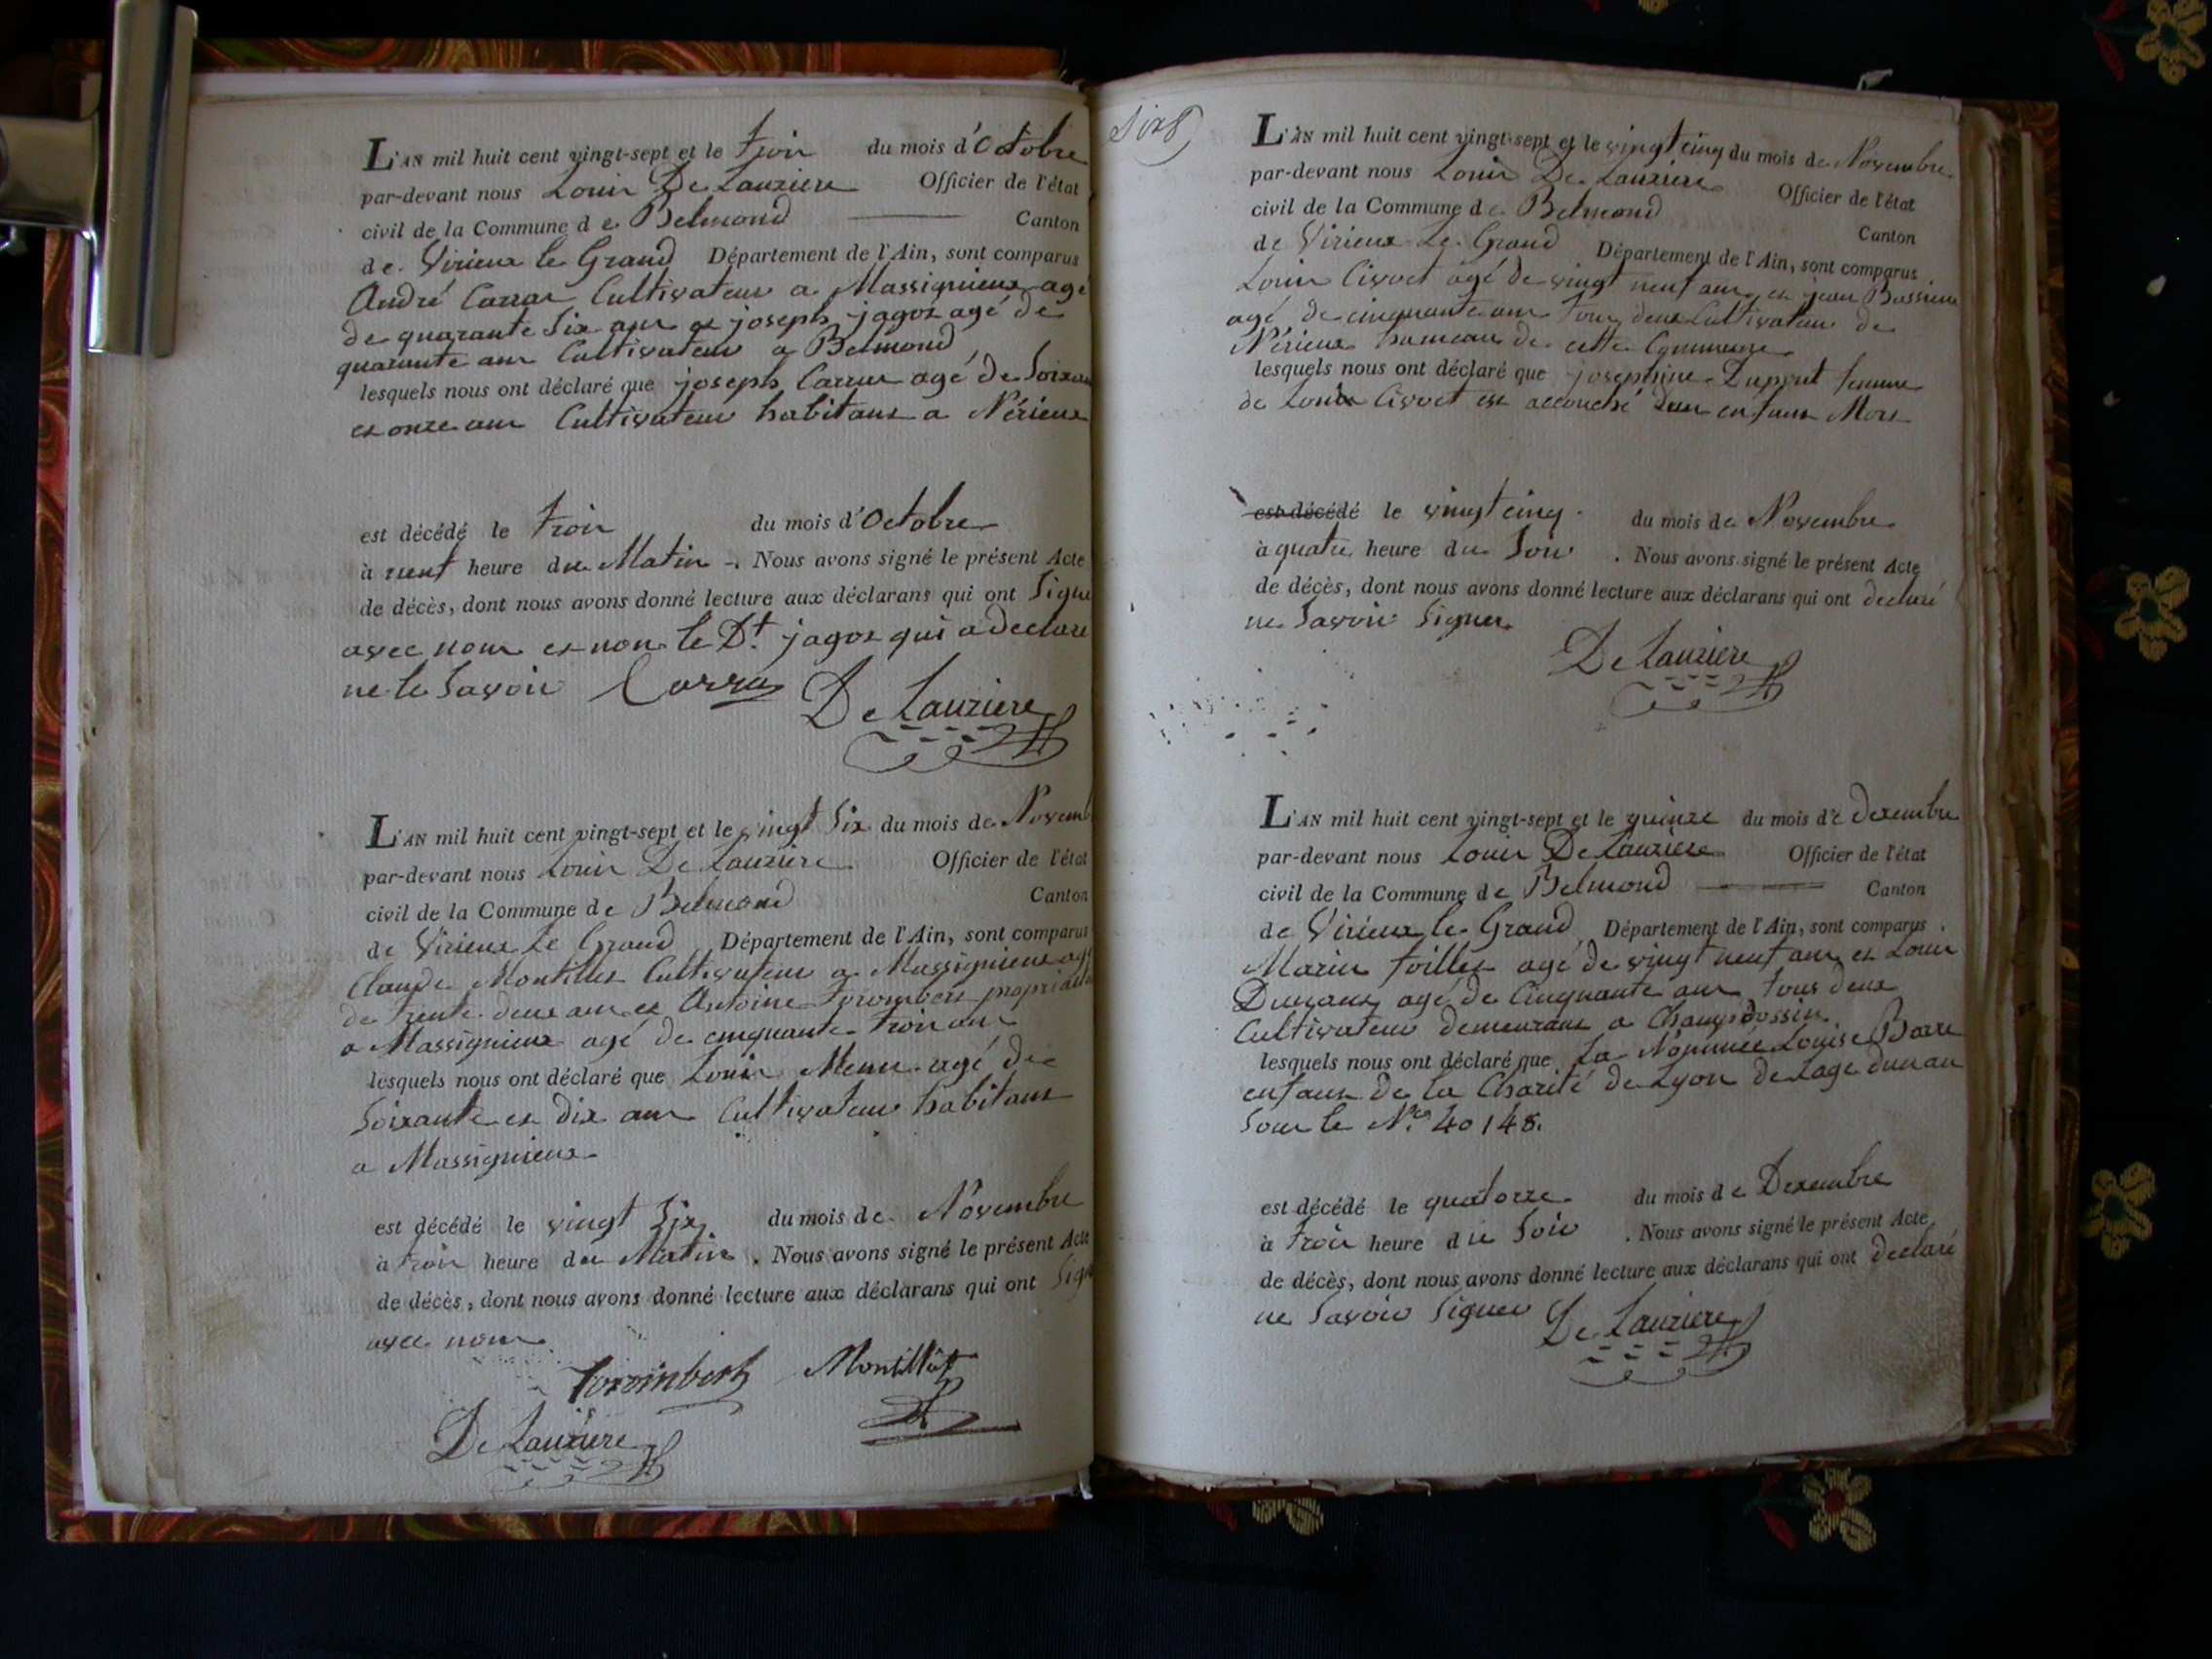 L'AN mil huit cent vingt-sept et le trois du mois d'Octobre
par-devant nous Louis De Lauziere Officier de l'état
civil de la Commune de Belmond Canton
de Virieux le Grand Département de l'Ain, sont comparus
André Carrar Cultivateur a Massignieux agé
de quarante Six ans et joseph jagot agé de
quarante ans Cultivateur a Belmond
lesquels nous ont déclaré que joseph agé de Soixan
et onze ans Cultivateur habitant a Nérieux
est décédé le trois du mois d'Octobre
à neuf heure du Matin. Nous avons signé le présent Acte
de décès, dont nous avons donné lecture aux déclarans qui ont Signé
avec nous et non le Dt. jagot qui a declaré
ne le Savoir Carra De Lauziere
L'AN mil huit cent vingt-sept et le vingt Six du mois de Novemb
par-devant nous Louis De Lauziere Officier de l'état
civil de la Commune de Belmond Canton
de Virieux Le Grand Département de l'Ain, sont comparus
Claude Montillet Cultivateur a Massignieux agé
de trente deux ans et Antoine trombert propriétai
a Massignieux agé de cinquante trois ans
lesquels nous ont déclaré que Louis agé de
Soixante et dix ans Cultivateur habitant
a Massignieux
est décédé le vingt Six du mois de Novembre
à trois heure du Matin. Nous avons signé le présent Acte
de décès, dont nous avons donné lecture aux déclarans qui ont Sign
avec nous
Montillet
De Lauziere
Six
L'AN mil huit cent vingt-sept et le vingt cinq du mois de Novembre
par-devant nous Louis De Lauziere Officier de l'état
civil de la Commune de Belmond Canton
de Virieux Le Grand Département de l'Ain, sont comparus
Louis Civoct agé de vingt neuf ans et jean Bassieux
agé de cinquante ans tous deux Cultivateur de
Nérieux hameau de cette Commune
lesquels nous ont déclaré que josephine Duport femme
de Louis Civoct est accouché d'un enfant Mort
est décédé le vingt cinq du mois de Novembre
à quatre heure du Soir. Nous avons signé le présent Acte
de décès, dont nous avons donné lecture aux déclarans qui ont declaré
ne Savoir Signer
De Lauziere
L'AN mil huit cent vingt-sept et le quinze du mois de dexembre
par-devant nous Louis De Lauziere Officier de l'état
civil de la Commune de Belmond Canton
de Virieux le Grand Département de l'Ain, sont comparus
Marin toillet agé de vingt neuf ans et Louis
agé de Cinquante ans tous deux
Cultivateur demeurant a Champdossin
lesquels nous ont déclaré que La Nommée Louise Barre
enfant de la Charité de Lyon de Lage dun an
Sous le No. 40148.
est décédé le quatorze du mois de Dexembre
à trois heure du Soir. Nous avons signé le présent Acte
de décès, dont nous avons donné lecture aux déclarans qui ont declaré
ne Savoir Signer De Lauziere